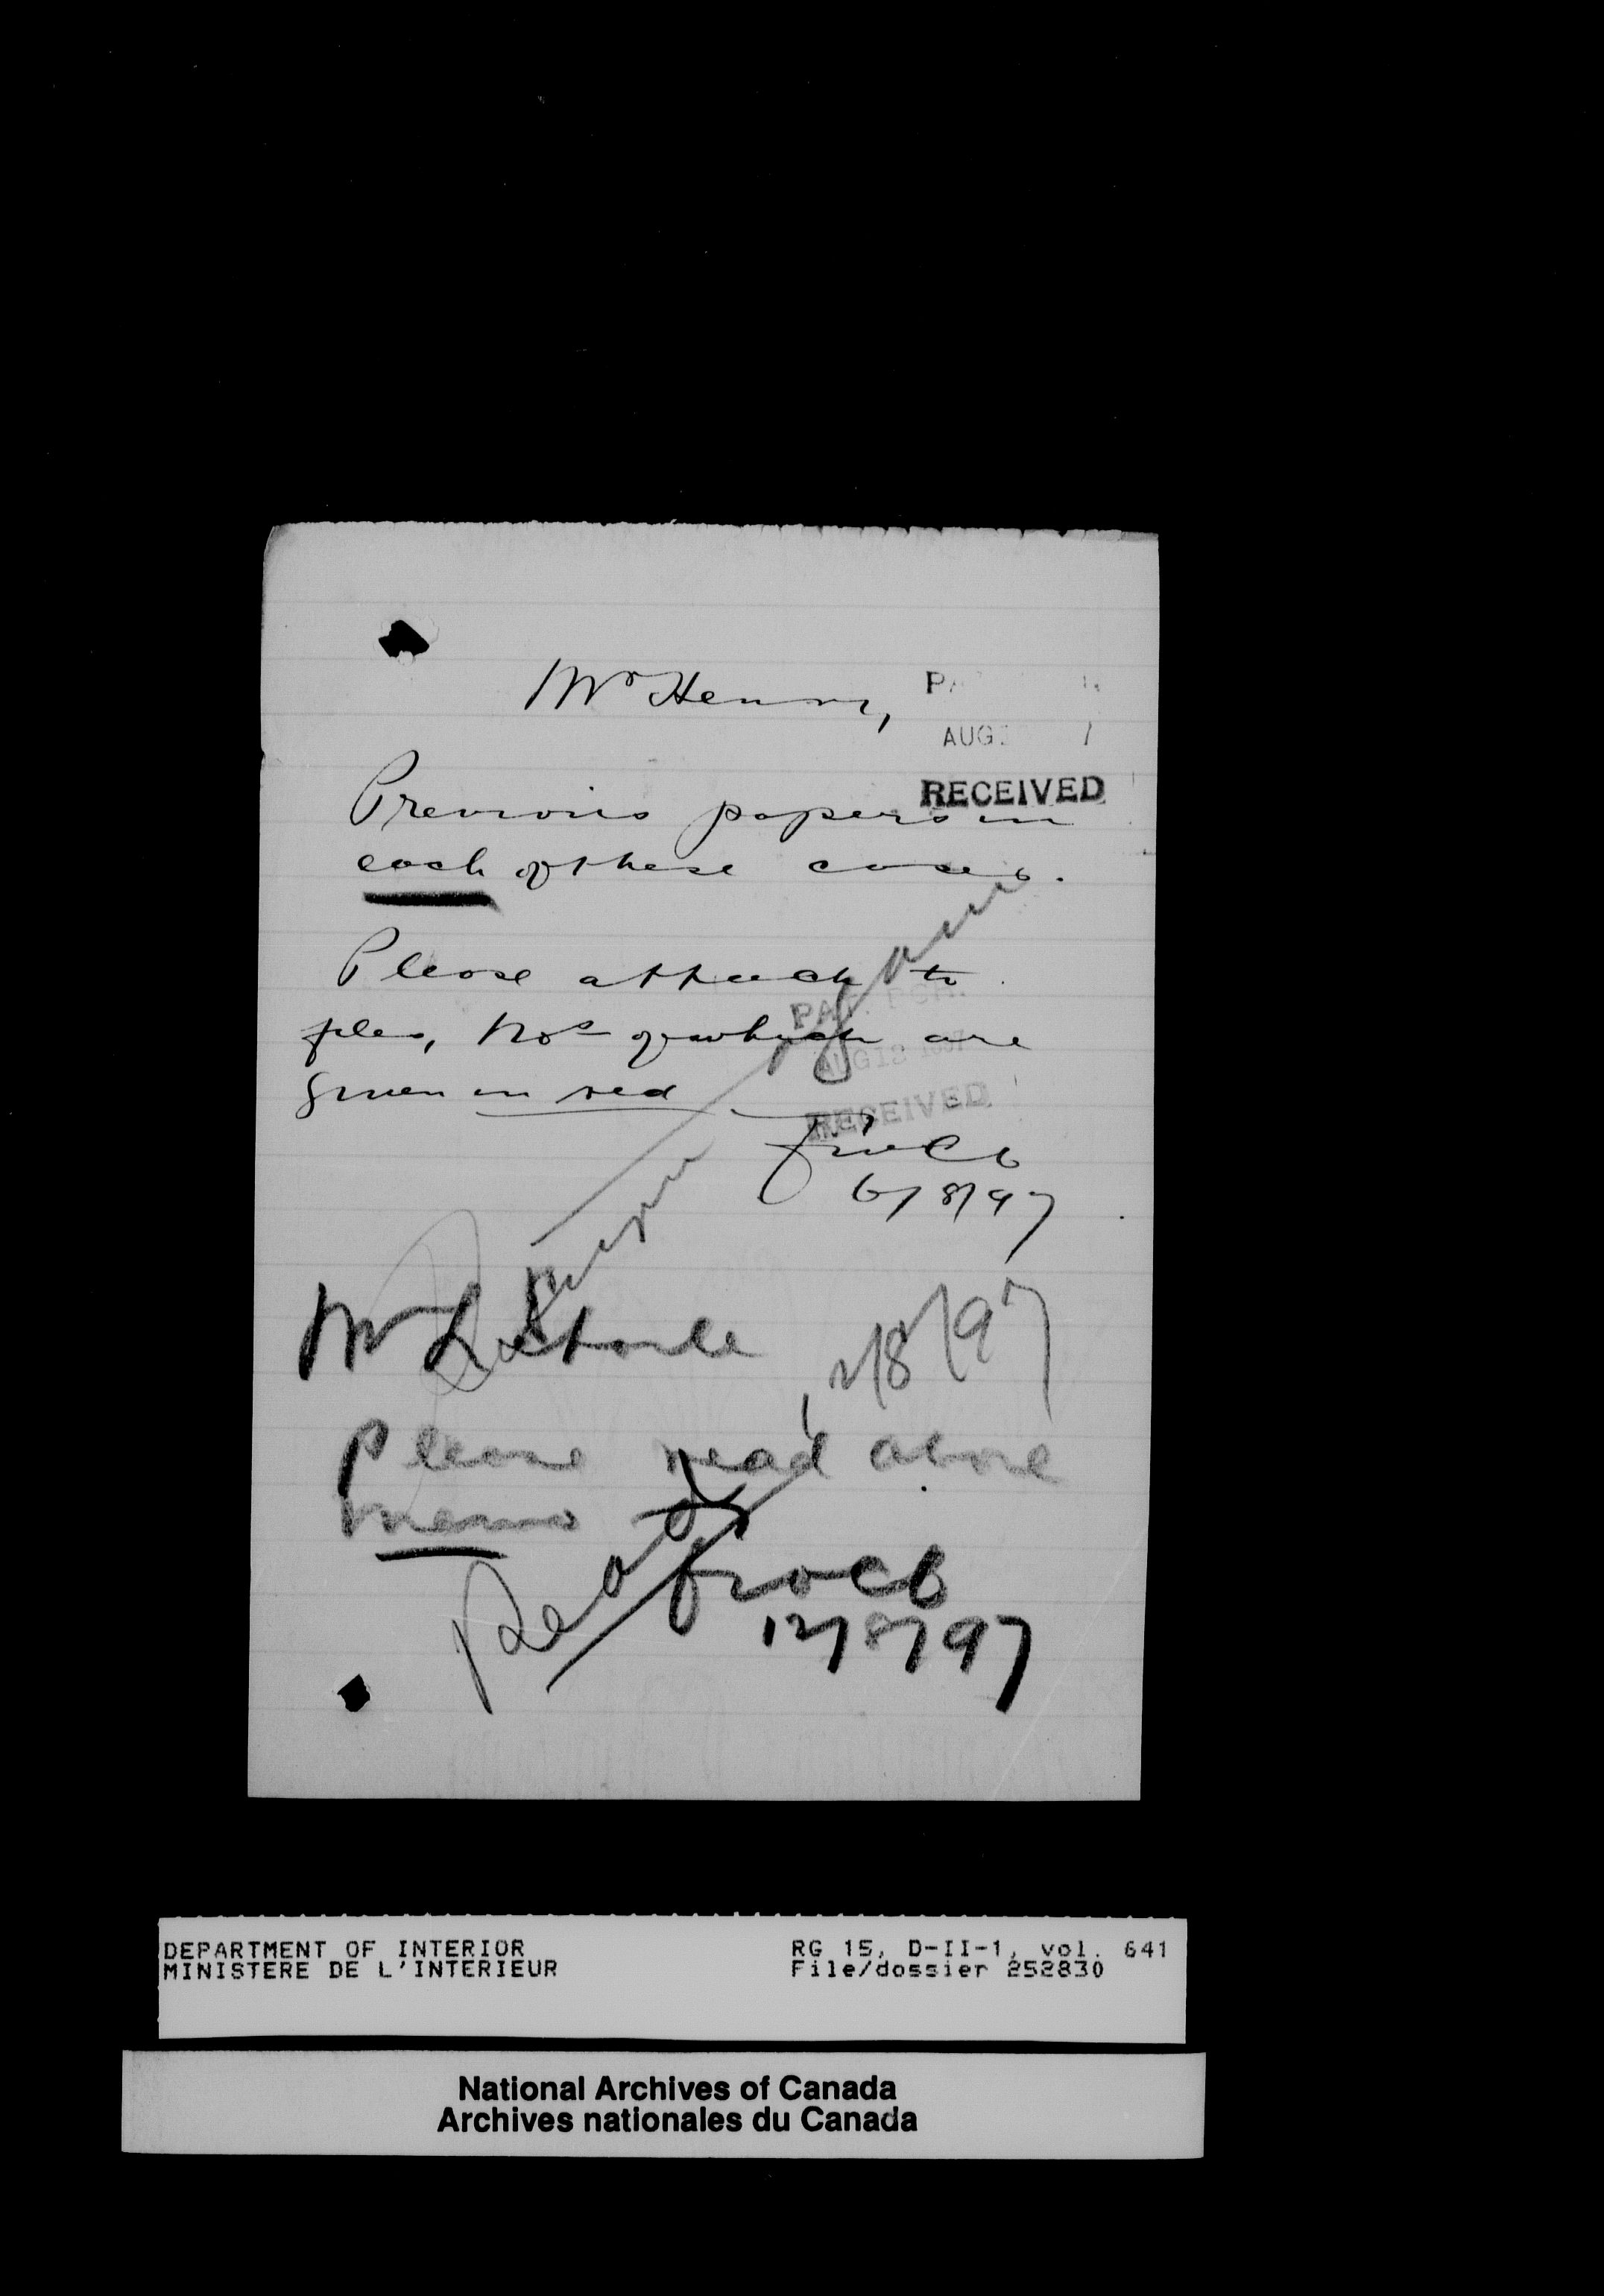 Mr Henry,
PA
AUG 7
RECEIVED
Previous papers in
each of these cases.
Please attach to
files, Nos of which are
given in red
PAT. BCH.
AUG 12 1897
RECEIVED
6/8/97
Mr
12/8/97
Please read above
memo
Read
12/8/97
DEPARTMENT OF INTERIOR
MINISTERE DE L'INTERIEUR
RG 15, D-II-1, vol. 641
File/dossier 252830
National Archives of Canada
Archives nationales du Canada